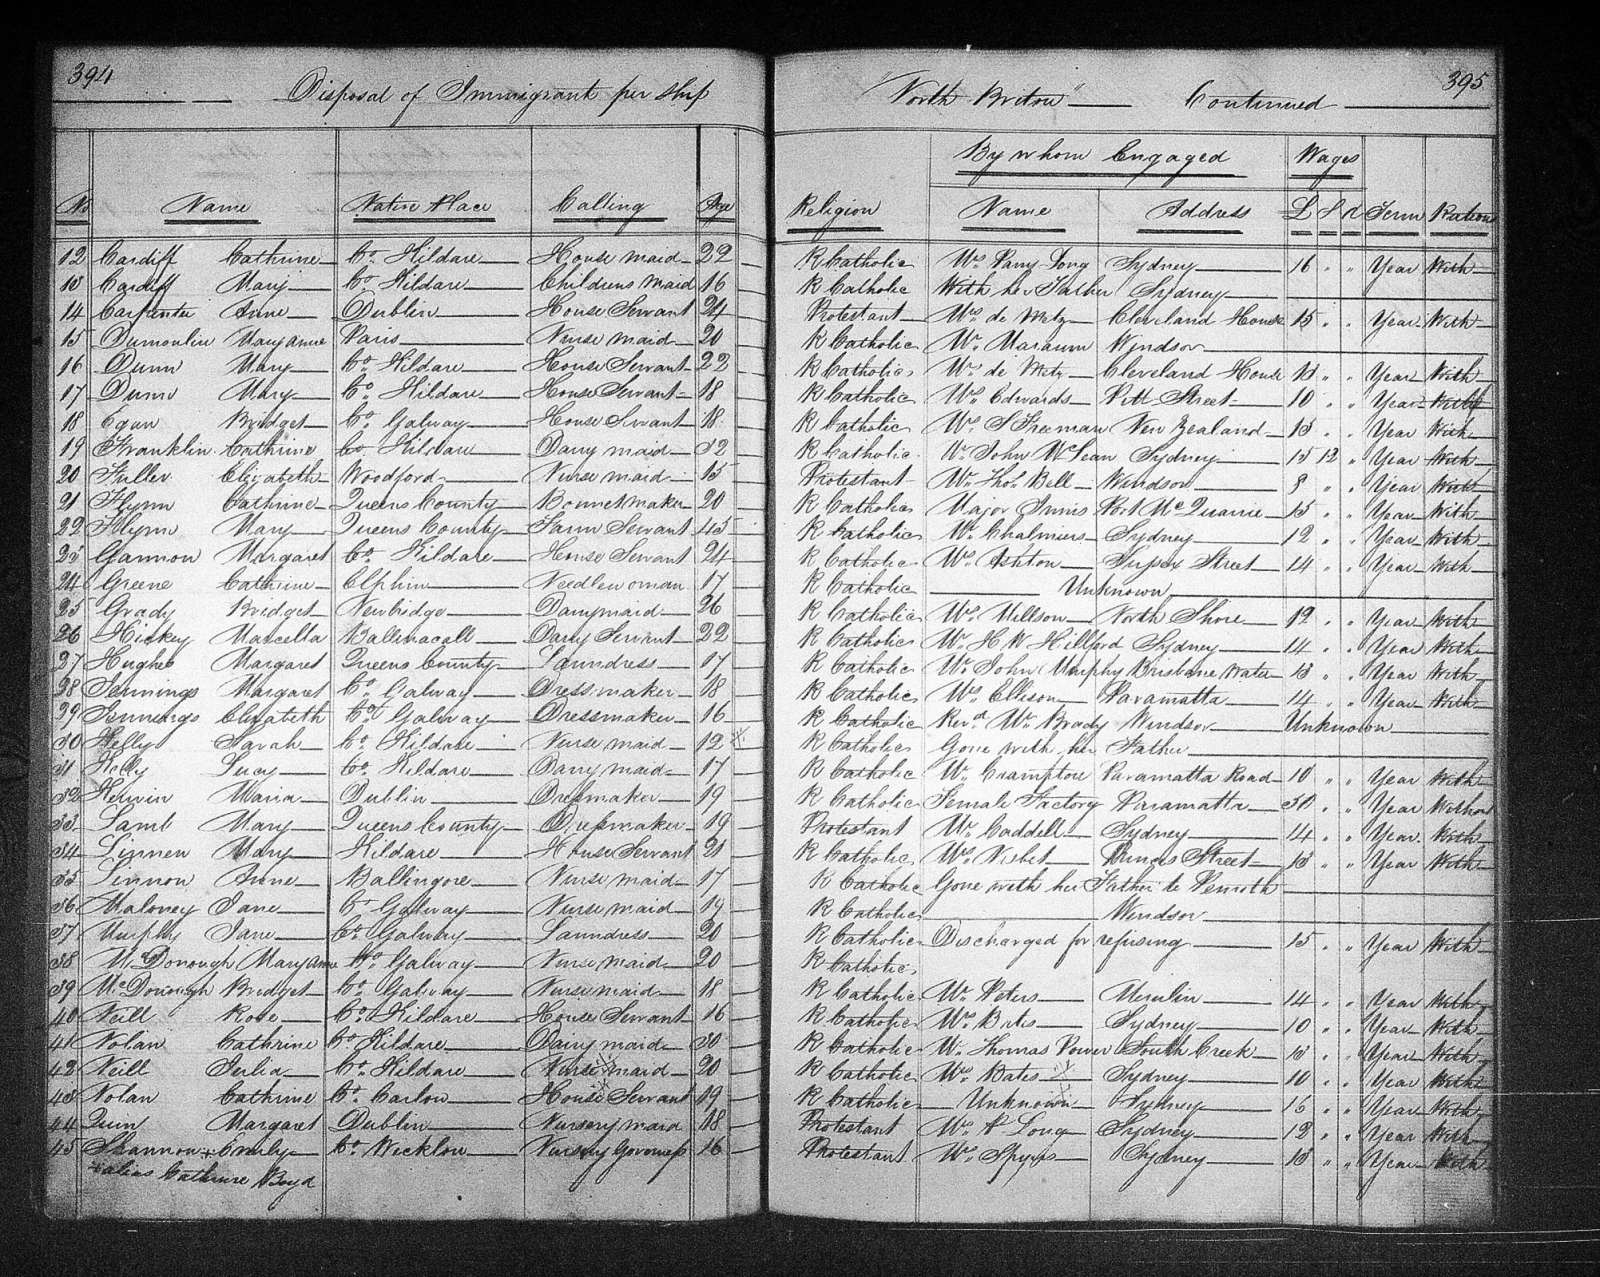 394
Disposal of Immigrant per ship "North Briton" Continued
395
By whom Engaged Wages
No Name Native Place Calling Age Religion Name Address £ S d Term Rations
12 Cardiff Cathrine Co. Kildare House maid 22 R Catholic Mrs Parry Long Sydney 16 " " Year With
13 Cardiff Mary Co Kildare Childrens Maid 16 R Catholic With her Father Sydney
14 Carpenter Anne Dublin House Servant 24 Protestant Mrs de Metz Cleveland House 15 " " Year With
15 Dumoulin Maryanne Paris Nurse maid 20 R Catholic Mr Windsor
16 Dunn Mary Co. Kildare House Servant 22 R Catholic Mrs de Metz Cleveland House 13 " " Year With
17 Dunn Mary Co. Kildare House Servant 18 R Catholic Mrs Edwards Pitt Street 10 " " Year With
18 Egan Bridget Co Galway House Servant 18 R Catholic Mrs S Freeman New Zealand 13 " " Year With
19 Franklin Cathrine Co. Kildare Dairy maid 32 R Catholic Mr John McLean Sydney 15 12 " Year With
20 Fuller Elizabeth Woodford Nurse maid 15 Protestant Mr Thos Bell Windsor 8 " " Year With
21 Flynn Cathrine Queens County Bonnet maker 20 R Catholic Major Innis Port McQuarrie 15 " " Year With
22 Flynn Mary Queens County Farm Servant 45 R Catholic Mr Chalmers Sydney 12 " " Year With
23 Gannon Margaret Co. Kildare House Servant 24 R Catholic Mrs Ashton Sussex Street 14 " " Year With
24 Greene Cathrine Elphin Needlewoman 17 R Catholic Unknown
25 Grady Bridget Newbridge Dairymaid 26 R Catholic Mrs Millson North Shore 12 " " Year With
26 Hickey Marcella Ballinacall Dairy Servant 22 R Catholic Mr H W Hillford Sydney 14 " " Year With
27 Hughes Margaret Queens County Laundress 17 R Catholic Mr John Murphy Brisbane Water 13 " " Year With
28 Jennings Margaret Co. Galway Dressmaker 18 R Catholic Mrs Ellison Paramatta 14 " " Year With
29 Jennings Elizabeth Co. Galway Dressmaker 16 R Catholic Revd Mr Brady Windsor Unknown
30 Kelly Sarah Co Kildare Nurse maid 12 x R Catholic Gone with her Father
31 Kelly Lucy Co. Kildare Dairy maid 17 R Catholic Mr Crampton Paramatta Road 10 " " Year With
32 Kerwin Maria Dublin Dressmaker 19 R Catholic Female Factory Paramatta 30 " " Year Without
33 Lamb Mary Queens County Dressmaker 19 Protestant Mr Caddell Sydney 14 " " Year With
34 Linnen Mary Kildare House Servant 21 R Catholic Mrs Nisbet Princes Street 13 " " Year With
35 Linnon Anne Ballingore Nurse maid 17 R Catholic Gone with her Father to Penrith
36 Maloney Jane Co Galway Nurse maid 19 R Catholic Windsor
37 Murphy Jane Co. Galway Laundress 20 R Catholic Discharged for refusing 15 " " Year With
38 McDonough Maryanne Co. Galway Nurse maid 20 R Catholic
39 McDonough Bridget Co. Galway Nurse maid 18 R Catholic Mr Peters Merulin 14 " " Year With
40 Neill Rose Co. Kildare House Servant 16 R Catholic Mrs Bates Sydney 10 " " Year With
41 Nolan Cathrine Co. Kildare Dairy maid 30 R Catholic Mr Thomas Power South Creek 13 " " Year With
42 Neill Julia Co. Kildare Nurse maid 20 R Catholic Mrs Bates Sydney 10 " " Year With
43 Nolan Cathrine Co. Carlow House Servant 19 R Catholic Unknown Sydney 16 " " Year With
44 Quin Margaret Dublin Nursery maid 18 Protestant Mr A Long Sydney 12 " " Year With
45 Shannon + Emily Co. Wicklow Nursery Governess 16 Protestant Mrs Spyers Sydney 13 " " Year With
+ alias Cathrine Boyd